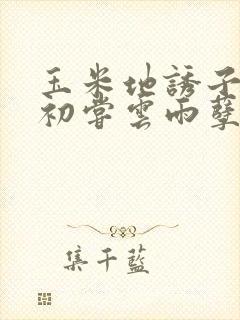 玉米地誘子
初嘗雲雨孽
集千藍